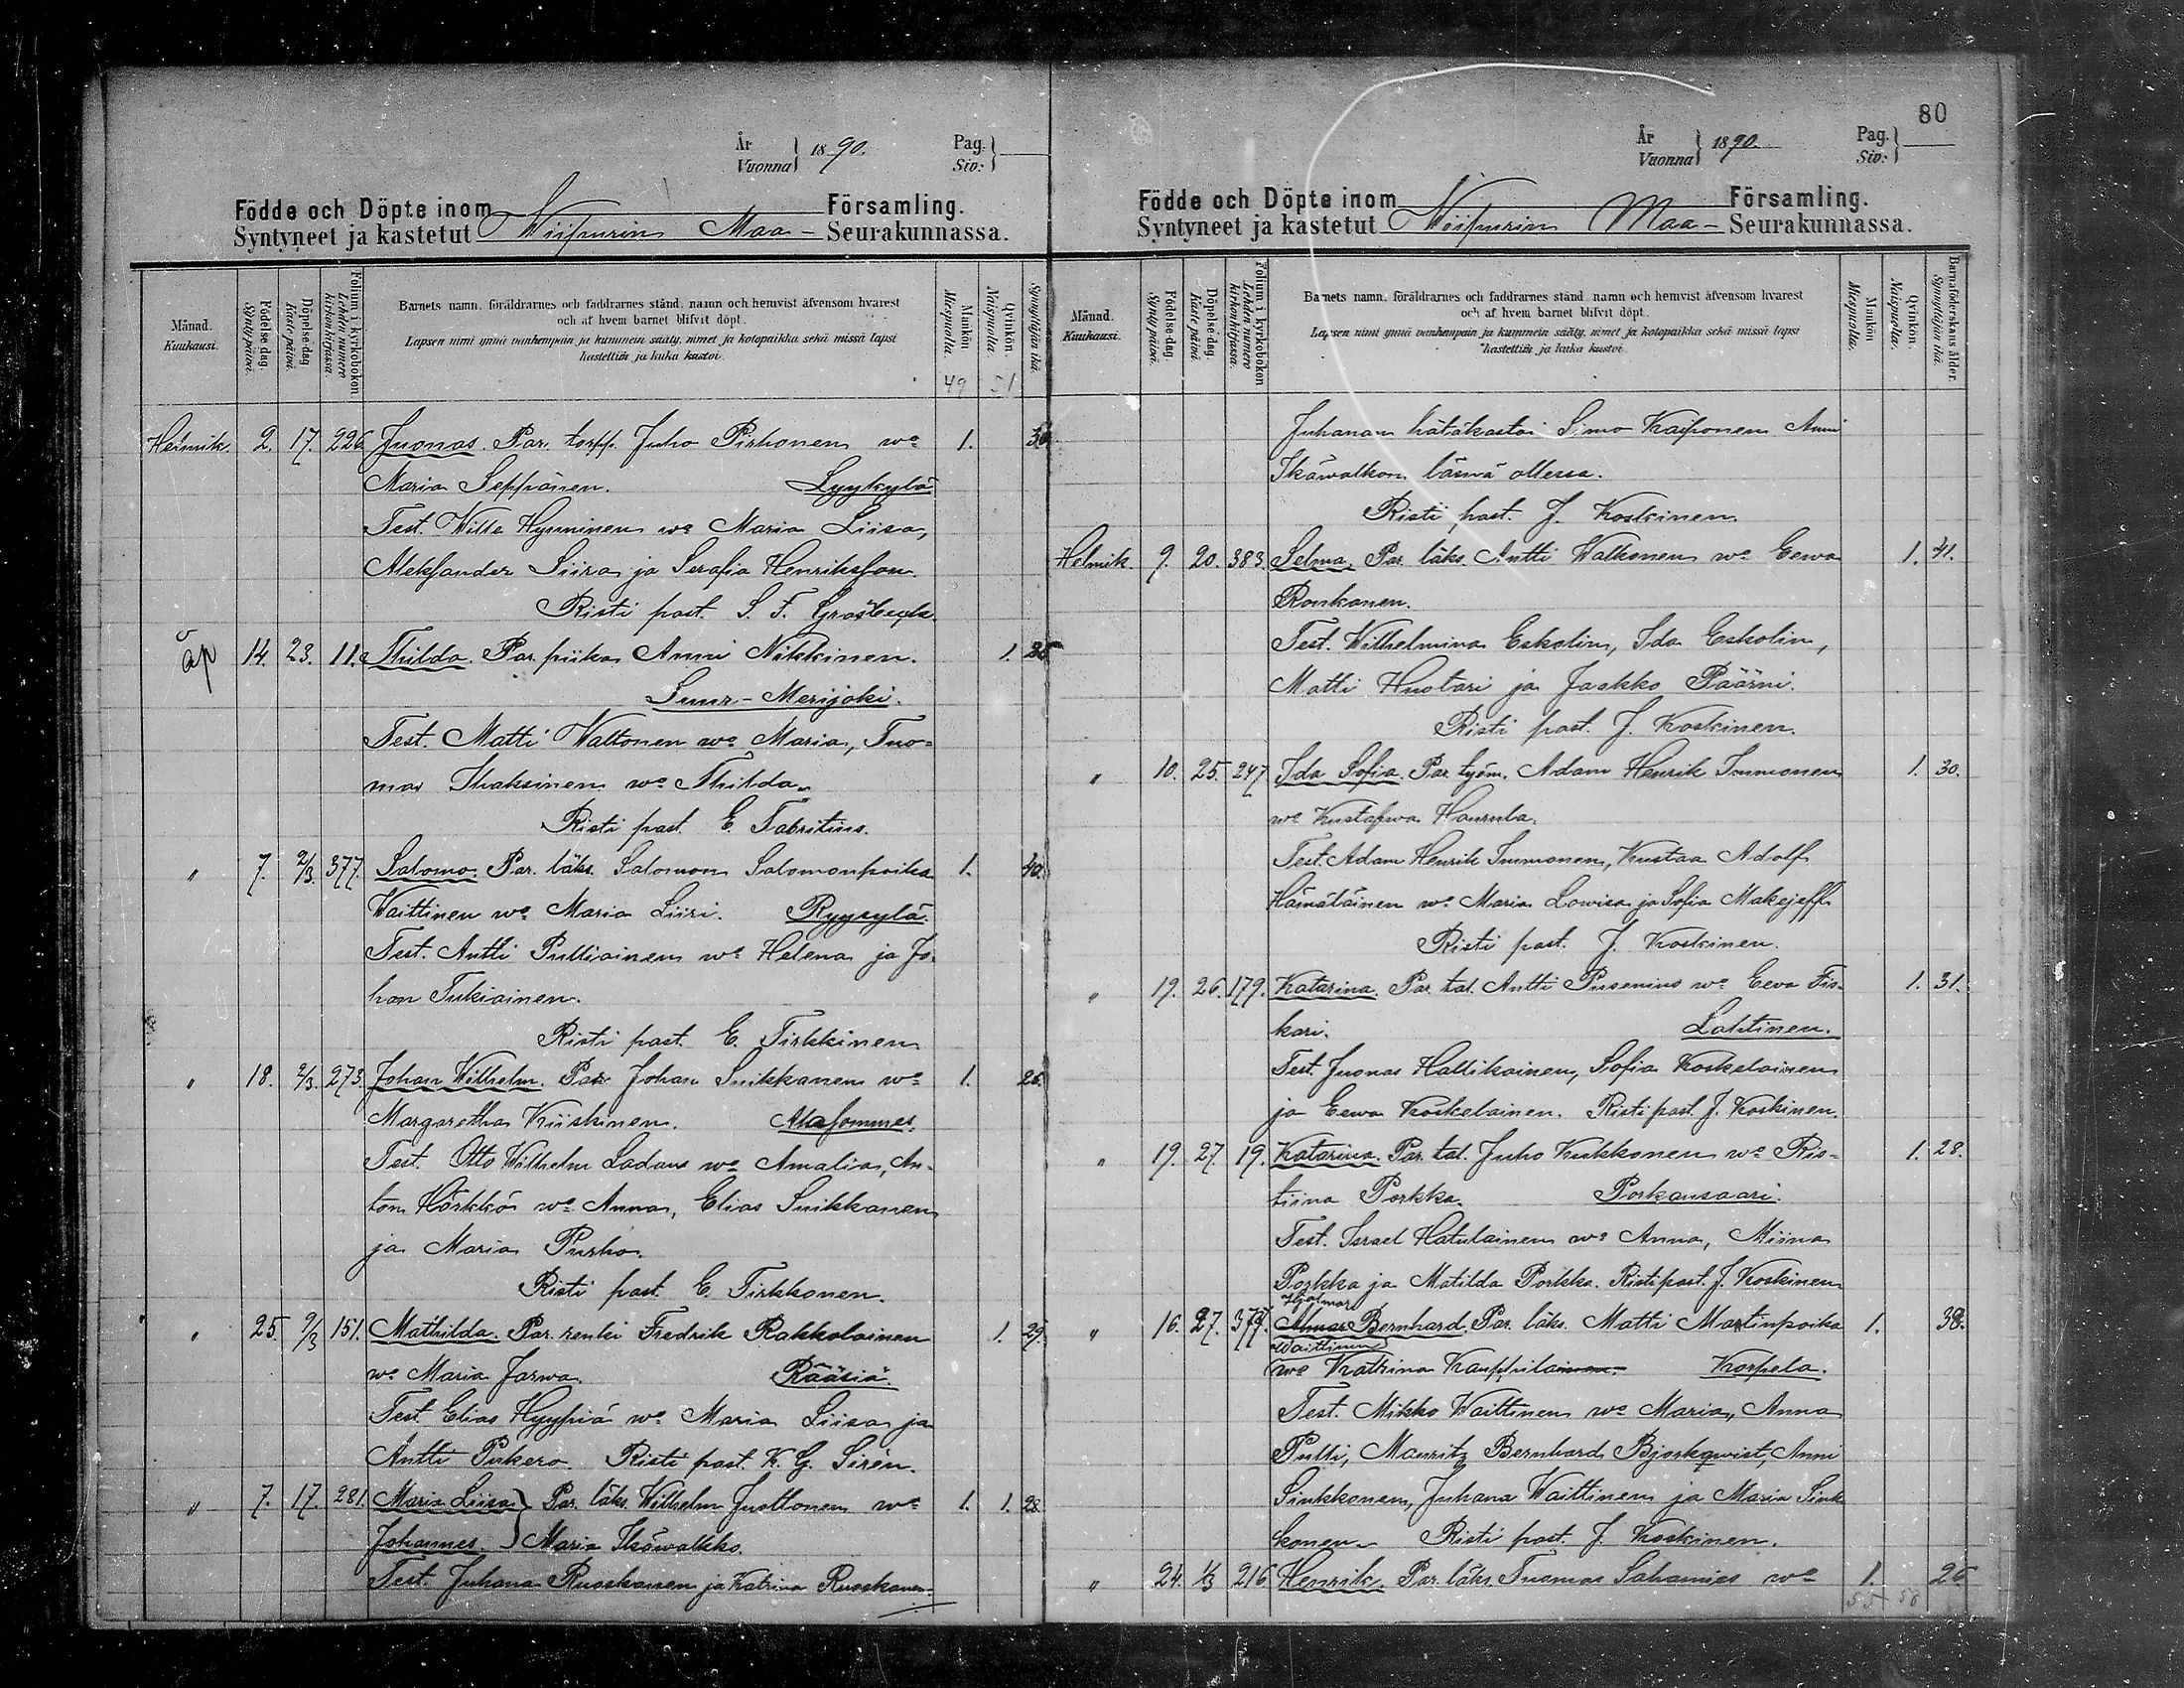 80
År
Vuonna } 1890.
Pag.
Siv: }
Födde och Döpte inom Församling.
Syntyneet ja kastetut Wiipurin Maa- Seurakunnassa.
Månad. Kuukausi.
Födelse dag. Syntypäivä.
Döpelse-dag. Kaste päivä.
Folium i kyrkobokon Lehden numero kirkonkirjassa.
Barnets namn. föräldrarnes och faddrarnes stånd. namn och hemvist äfvensom hvarest
och af hvem barnet blifvit döpt.
Lapsen nimi ynnä vanhempain ja kummein sääty, nimet ja kotopaikka sekä missä lapsi
kastettiin ja kuka kastoi.
Mankön. Miespuolia.
Qvinkön. Naispuolia.
Synnyttäjän ikä.
49 51
Helmik. 2. 17. 226 Juonas. Par. torpp. Juho Pirhonen wo 1. 30
Maria Seppänen. Lyykylä
Test. Wille Hynninen wo Maria Liisa,
Aleksander Siira ja Serafia Henriksson.
Risti past. S. F.
äp 14. 23. 11. Thilda. Par. piika Anni Nikkinen. 1. 35
Suur-Merijoki.
Test. Matti Waltonen wo Maria, Tuo-
mas Ihaksinen wo Thilda.
Risti past. E. Fabritius.
" 7. 2/3. 377. Salomo. Par. läks. Salomon Salomonpoika 1. 40.
Waittinen wo Maria Liiri. Ryysylä.
Test. Antti Pulliainen wo Helena ja Jo-
han Tukiainen.
Risti past. E. Tirkkinen.
" 18. 2/3. 273. Johan Wilhelm. Par. Johan Suikkanen wo 1. 26.
Margaretha Kiiskinen. Alasommes.
Test. Otto Wilhelm Ladau wo Amalia, An-
ton Hörkkö wo Anna, Elias Suikkanen
ja Maria Purho.
Risti past. E. Tirkkonen.
" 25. 9/3 151. Mathilda. Par. renki Fredrik Rakkolainen 1. 29.
wo Maria Jarwa. Rääsiä.
Test. Elias Hyypiä wo Maria Liisa ja
Antti Pukero. Risti past. K. G. Sirén.
" 7. 17. 281. Maria Liisa } Par. läks. Wilhelm Juottonen wo 1. 1. 28.
Johannes. } Maria Ikäwalkko.
Test. Juhana Ruoskanen ja Katrina Ruoskanen.
År
Vuonna } 1890.
Pag.
Siv: }
Födde och Döpte inom Församling.
Syntyneet ja kastetut Wiipurin Maa- Seurakunnassa.
Månad. Kuukausi.
Födelse dag. Synty päivä.
Döpelse-dag. Kaste päivä.
Folium i kyrkobokon Lehden numero kirkonkirjassa.
Barnets namn. föräldrarnes och faddrarnes stånd. namn och hemvist äfvensom hvarest
och af hvem barnet blifvit döpt.
Lapsen nimi ynnä vanhempain ja kummein sääty, nimet ja kotopaikka sekä missä lapsi
kastettiin ja kuka kastoi.
Mankön Miespuolia.
Qvinkön. Naispuolia.
Barnaföderskans ålder. Synnyttäjän ikä.
Juhanan hätäkastoi Simo Kaiponen Anni
Ikäwalkon läsnä ollessa.
Risti past. J. Koskinen.
Helmik. 9. 20. 383. Selma. Par. läks. Antti Walkonen wo Eewa 1. 41.
Ronkanen.
Test. Wilhelmina Eskolin, Ida Eskolin,
Matti Huotari ja Jaakko Päärni.
Risti past. J. Koskinen.
" 10. 25. 247 Ida Sofia. Par. työm. Adam Henrik Immonen 1. 30.
wo Kustafwa Haurula.
Test. Adam Henrik Immonen, Kustaa Adolf
Hämäläinen wo Maria Lowisa ja Sofia Makejeff
Risti past. J. Koskinen.
" 19. 26. 179. Katarina. Par. tal. Antti Pusenius wo Eeva Fis- 1. 31.
kari. Lahtinen.
Test. Juonas Hallikainen, Sofia Koskelainen
ja Eewa Koskelainen. Risti past. J. Koskinen.
" 19. 27. 19. Katarina. Par. tal. Juho Kukkonen wo Ris- 1. 28.
tiina Porkka. Porkansaari.
Test. Israel Hatulainen wo Anna, Miina
Porkka ja Matilda Porkka. Risti past. J. Koskinen
Hjalmar
" 16. 27. 377. Bernhard. Par. läks. Matti Martinpoika 1. 38.
Waittinen
wo Katrina Kauppilainen. Korpela.
Test. Mikko Waittinen wo Maria, Anna
Pulli, Mauritz Bernhard Bjorkqwist, Anni
Sinkkonen, Juhana Waittinen ja Maria Sink-
konen. Risti past. J. Koskinen.
" 24. 1/3 216 Henrik. Par. läks. Tuomas Sahamies wo 1. 26
55 58